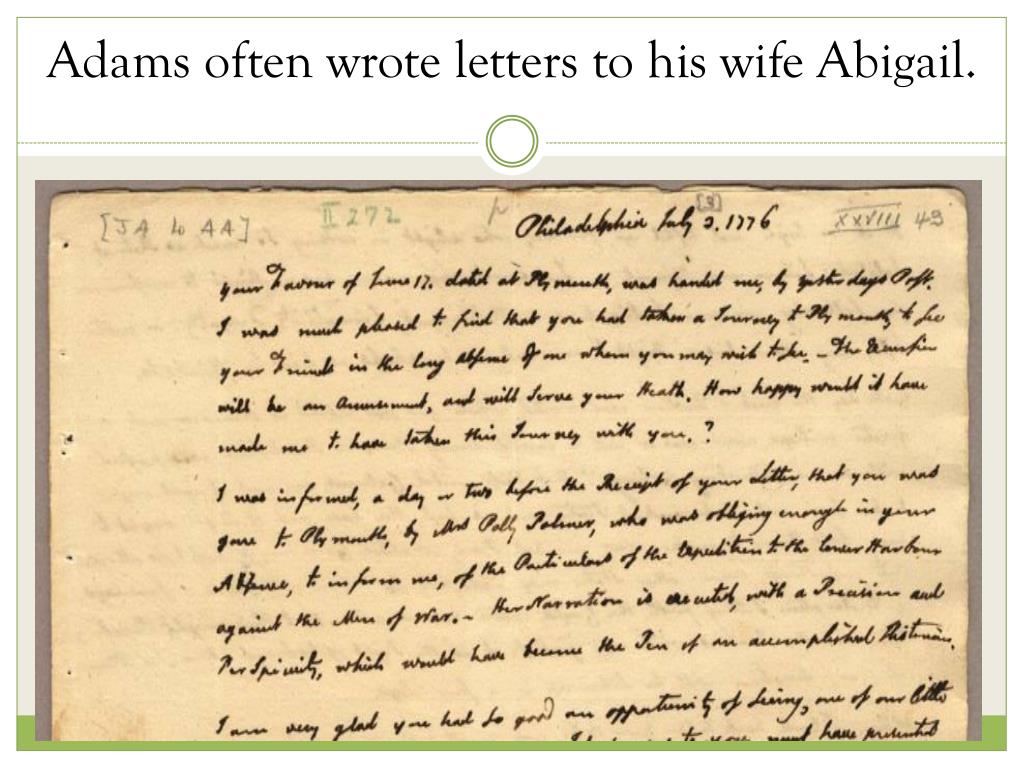 Adams often wrote letters to his wife Abigail.
[JA to AA]
II 272
[3]
Philadelphia July 3. 1776
XXVIII 43
your Favour of June 17. dated at Plymouth, was handed me, by yesterdays Post.
I was much pleased to find that you had taken a Journey to Plymouth to see
your Friends in the long absence of one whom you may wish to see. — The Excursion
will be an Amusement, and will serve your Health. How happy would it have
made me to have taken this Journey with you. ?
I was informed, a day or two before the Receipt of your Letter, that you was
gone to Plymouth, by Mrs Polly Palmer, who was obliging enough in your
Absence, to inform me, of the Particulars of the Expedition to the lower Harbour
against the Men of War. — Her Narration is executed, with a Precision and
Perspicuity, which would have become the Pen of an accomplished Historian.
I am very glad you had so good an opportunity of seeing, one of our little
to you must have presented